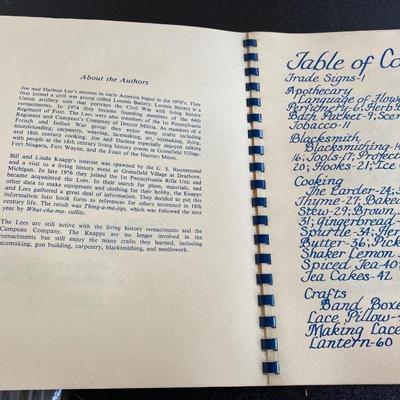 About the Authors
Joe and Darlene Lee's interest in early America began in the 1970's. They
first joined a civil war group called Loomis Battery. Loomis Battery is a
Union artillery unit that portrays the Civil War with living history
reenactments. In 1974 they became founding members of the 64th
Regiment of Foot. The Lees were also members of the 1st Pennsylvania
Regiment and Campeau's Company of Detroit Militia. As members of a
French and Indian War group they enjoy many crafts including
metalsmithing, carpentry, weaving, lacemaking, art,
needlefolding, and dyeing. Joe and Darlene especially enjoyed talking
people at the 18th century living history events at Greenfield Village,
Fort Niagara, Fort Wayne, and the Feast of the Hunters Moon.
Bill and Linda Knapp's interest was spawned by the U. S. Bicentennial
by a living history event at Greenfield Village at Dearborn,
Michigan. In late 1976 they joined the 1st Pennsylvania Rifle Unit and
became acquainted the Lees. In their search for plans, materials, and
other data to make equipment and clothing for their hobby, the Knapps
and Lees gathered a great deal of information. They decided to put this
information into book form as references for others interested in 18th
century life. The result was Thing-a-ma-jigs, which was followed the next
year by What-cha-ma-callits.
The Lees are still active with the living history reenactments and the
Campeau Company. The Knapps are no longer involved in the
reenactments but still enjoy the many crafts they learned, including
lacemaking, gun building, carpentry, blacksmithing, and needlework.
Table of Co
Trade Signs-1
Apothecary
Language of Flowe
Perfumery-6; Herb
Bath Packet-9; Scen
Tobacco-11
Blacksmith
Blacksmithing-14
16; Tools-17; Project
20; Hooks-21; Ice C
Cooking
The Larder-24; S
Thyme-27; Baked
Stew-29; Brown
31; Gingerbread-
Spurtle-34; Her
Butter-36; Pick
Shaker Lemon
Spiced Tea-40;
Tea Cakes-42
Crafts
Band Boxe
Lace, Pillow-4
Making Lace
Lantern-60